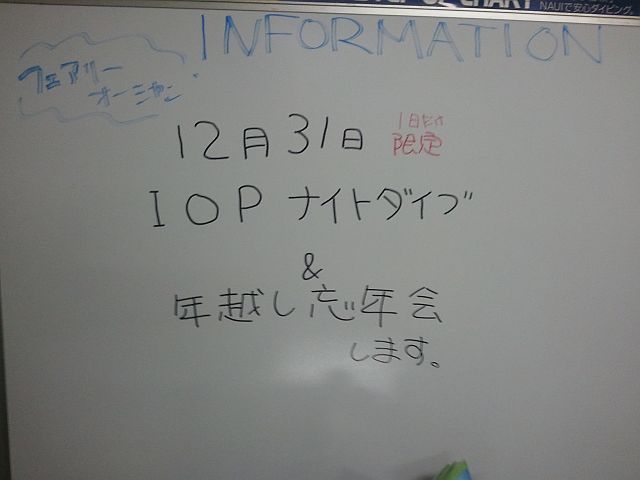 CHART
NAUIで安心ダイビング
INFORMATION
フェアリー
オーシャン
12月31日
1日だけ
限定
IOP ナイトダイブ
&
年越し忘年会
します。